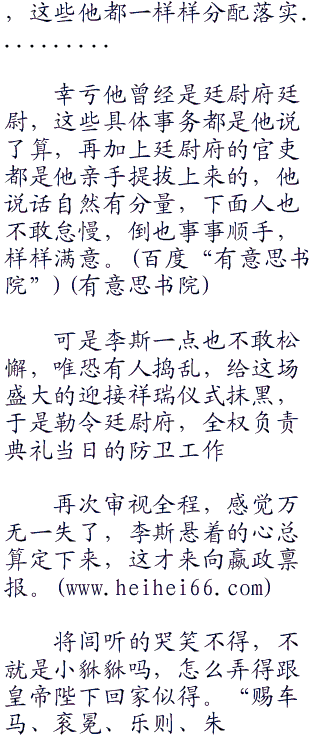 ，这些他都一样样分配落实.
.........
幸亏他曾经是廷尉府廷
尉，这些具体事务都是他说
了算，再加上廷尉府的官吏
都是他亲手提拔上来的，他
说话自然有分量，下面人也
不敢怠慢，倒也事事顺手，
样样满意。(百度“有意思书
院”)(有意思书院)
可是李斯一点也不敢松
懈，唯恐有人捣乱，给这场
盛大的迎接祥瑞仪式抹黑，
于是勒令廷尉府，全权负责
典礼当日的防卫工作
再次审视全程，感觉万
无一失了，李斯悬着的心总
算定下来，这才来向嬴政禀
报。(www.heihei66.com)
将闾听的哭笑不得，不
就是小貅貅吗，怎么弄得跟
皇帝陛下回家似得。“赐车
马、衮冕、乐则、朱